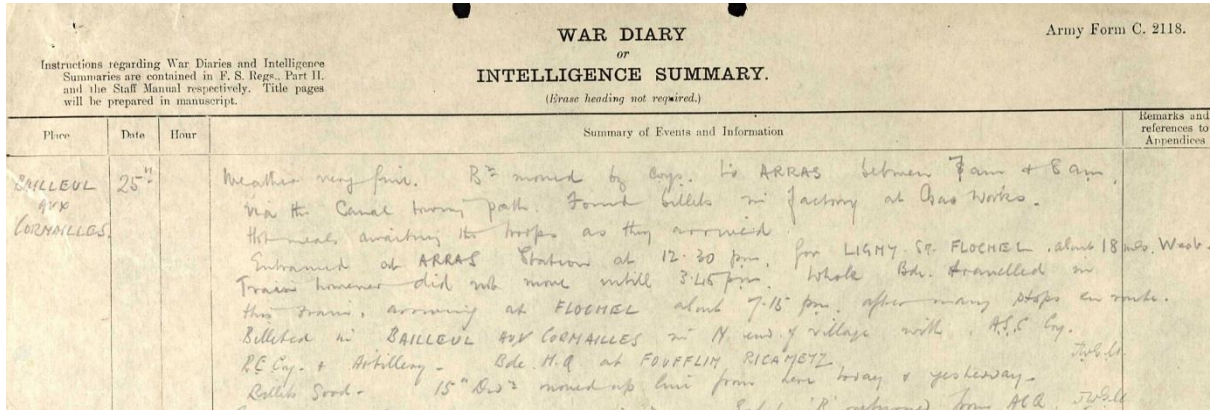 WAR DIARY
or
INTELLIGENCE SUMMARY.
(Erase heading not required.)
Army Form C. 2118.
Instructions regarding War Diaries and Intelligence
Summaries are contained in F. S. Regs., Part II.
and the Staff Manual respectively. Title pages
will be prepared in manuscript.
Place Date Hour Summary of Events and Information Remarks and references to Appendices
BAILLEUL AUX CORMAILLES. 25th
Weather very fine. Bn moved by Coys. to ARRAS between 7 am & 8 am,
via the Canal towing path. Found billets in factory at Gas Works.
Hot meals awaiting the troops as they arrived
Entrained at ARRAS Station at 12.30 pm. for LIGNY-ST. FLOCHEL. about 18 mls. West.
Train however did not move untill 3.45 pm. Whole Bde. travelled in
this train, arriving at FLOCHEL about 7.15 pm. after many stops en route.
Billeted in BAILLEUL AUX CORMAILLES in N. end of village with A.S.C Coy.
R.E Coy. & Artillery. Bde. H.Q. at FOUFFLIN RICAMETZ
Billets Good. 15th Divn moved up line from here today & yesterday.